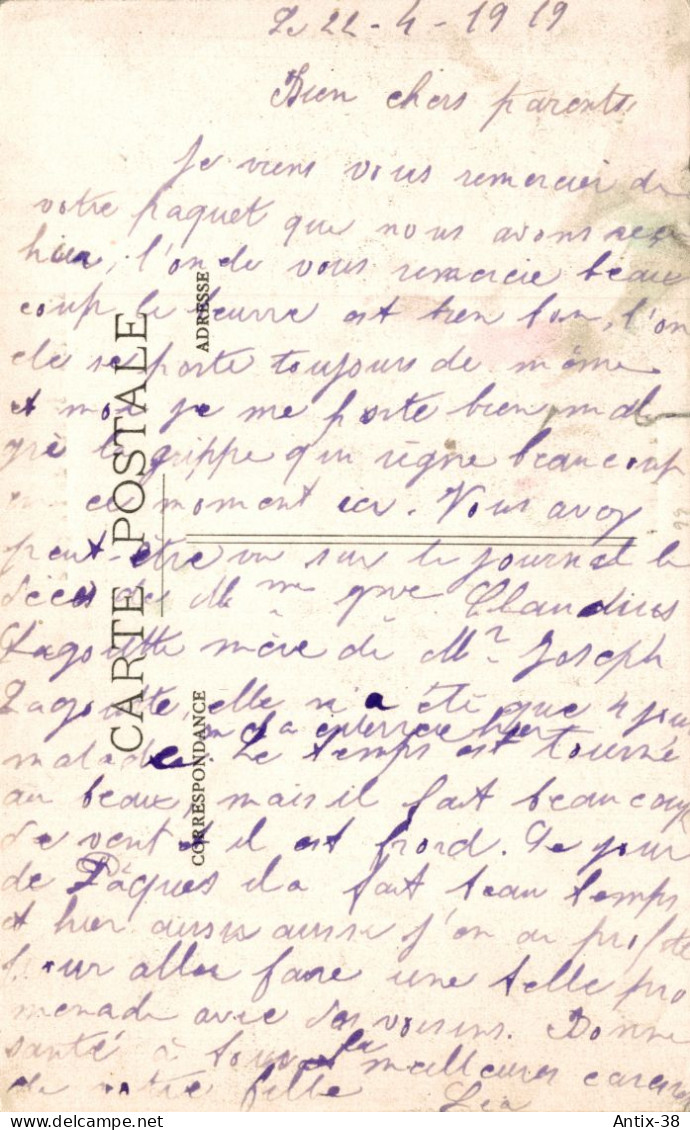 Le 22-4-1919
Bien chers parents
Je viens vous remercier de
votre paquet que nous avons reçu
hier, l'on de vous remercie beau
coup le beurre est bien bon, l'on
cle se porte toujours de même
et moi je me porte bien mal
gré la grippe qui règne beaucoup
en ce moment ici. Vous avez
peut-être vu sur le journal le
décès de Mme Claudius
Lagoutte mère de Mr Joseph
Lagoutte, elle n'a été que 4 jours
hier
malade. Le temps est tourné
au beaux, mais il fait beaucoup
de vent et il est froid. Le jour
de Pâques il a fait beau temps
et hier aussi aussi j'en ai profité
pour aller faire une belle pro
menade avec des voisins. Bonne
santé à tous et la meilleures caresses
de votre fille Léa
CARTE POSTALE
ADRESSE
CORRESPONDANCE
Antix-38